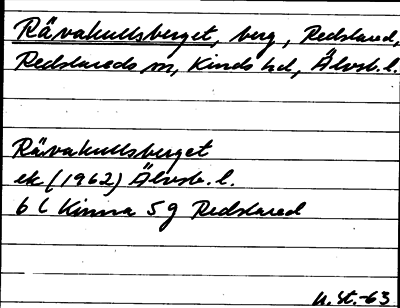 Rävakullsberget, berg, Redslared,
Redslareds sn, Kinds hd, Älvsb. l.
Rävakullsberget
ek (1962) Älvsb. l.
6 C Kinna 5 g Redslared
U.St.-63